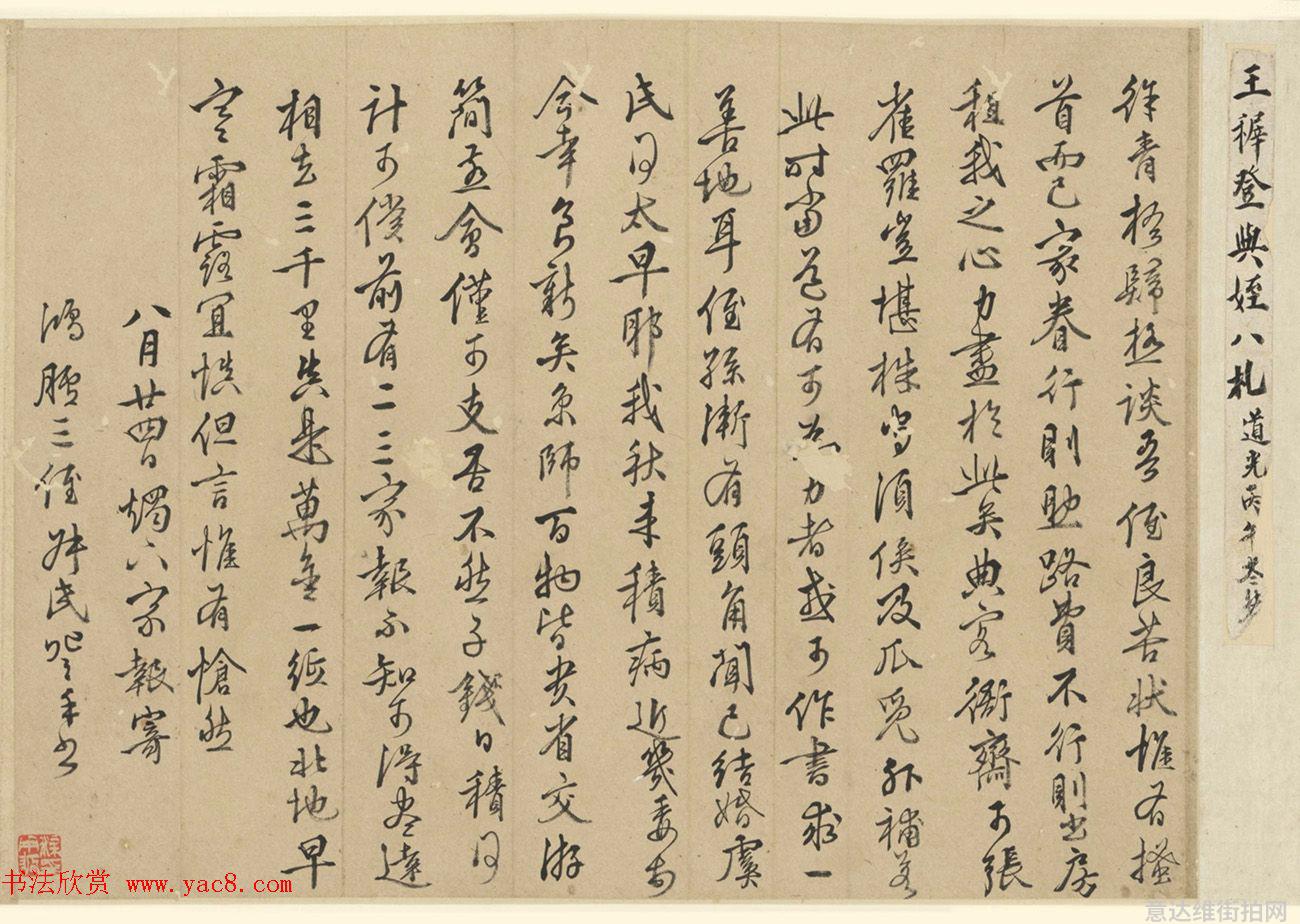 王穉登與姪八札 道光丙午
徐青梧歸極談吾侄良苦狀惟有搔
首而已家眷行則助路費不行則出房
租我之心力盡於此矣典客衙齋可張
雀羅豈堪株守須俟及瓜覓外補若
此時當道有可為力者或可作書求一
善地耳侄孫漸有頭角聞已結婚虞
氏得太早耶我秋來積病近幾委
今幸良新矣京師百物皆貴省交游
簡燕會僅可支吾不然子錢日積何
計可償前有二三家報不知可得盡達
相去三千里真是萬金一紙也北地早
寒霜露宜慎但言惟有愴然
八月廿四日燭下家報寄
鴻臚三侄 民
书法欣赏 www.yac8.com
意达维街拍网